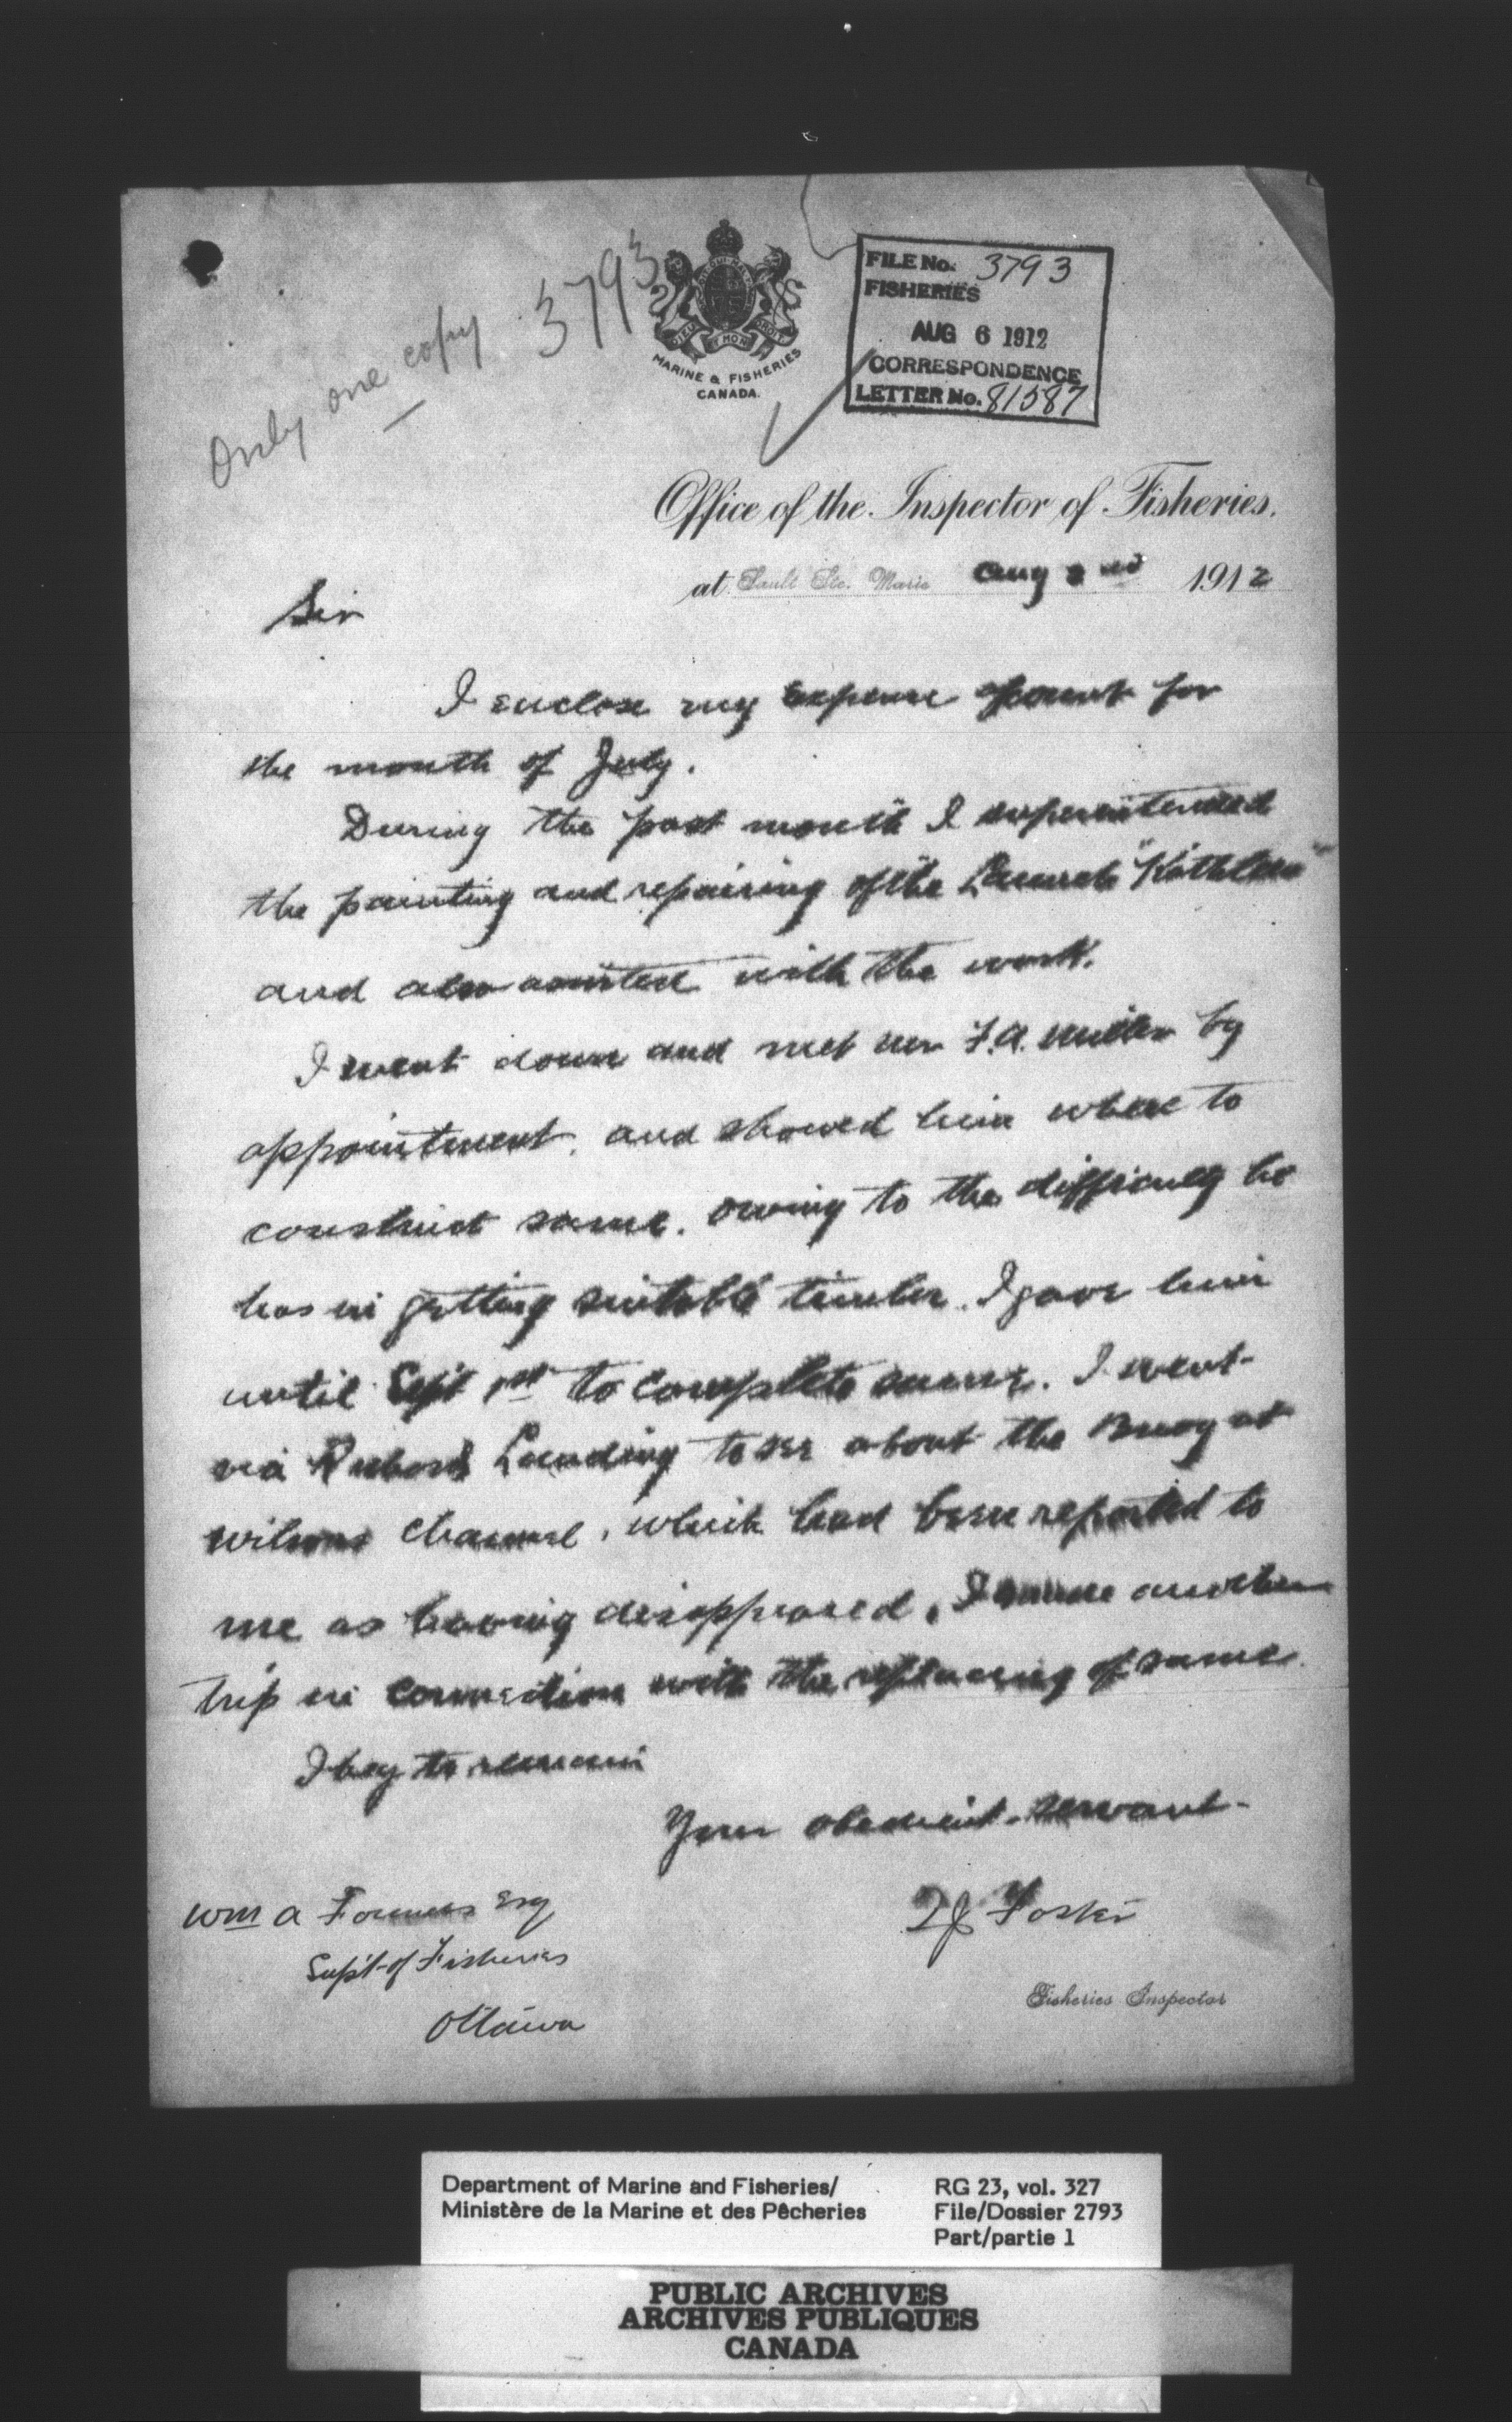 Only one copy
3793
DIEU ET MON DROIT
MARINE & FISHERIES
CANADA.
FILE No. 3793
FISHERIES
AUG 6 1912
CORRESPONDENCE
LETTER No. 81587
Office of the Inspector of Fisheries.
at Sault Ste. Marie Aug 2nd 1912
Sir
I enclose my expense account for
the month of July.
During the past month I superintended
the painting and repairing of the Launch "Kathleen"
and also assisted with the work.
I went down and met Mr F.A. Miller by
appointment, and showed him where to
construct same. Owing to the difficulty he
has in getting suitable timber. I gave him
until Sept 1st to complete same. I went
via Richards Landing to see about the Buoy at
Wilsons Channel, which had been reported to
me as having disappeared, I made another
trip in connection with the replacing of same.
I beg to remain
Your obedient servant
Foster
Fisheries Inspector
Wm A Esq
Supt of Fisheries
Ottawa
Department of Marine and Fisheries/
Ministère de la Marine et des Pêcheries
RG 23, vol. 327
File/Dossier 2793
Part/partie 1
PUBLIC ARCHIVES
ARCHIVES PUBLIQUES
CANADA